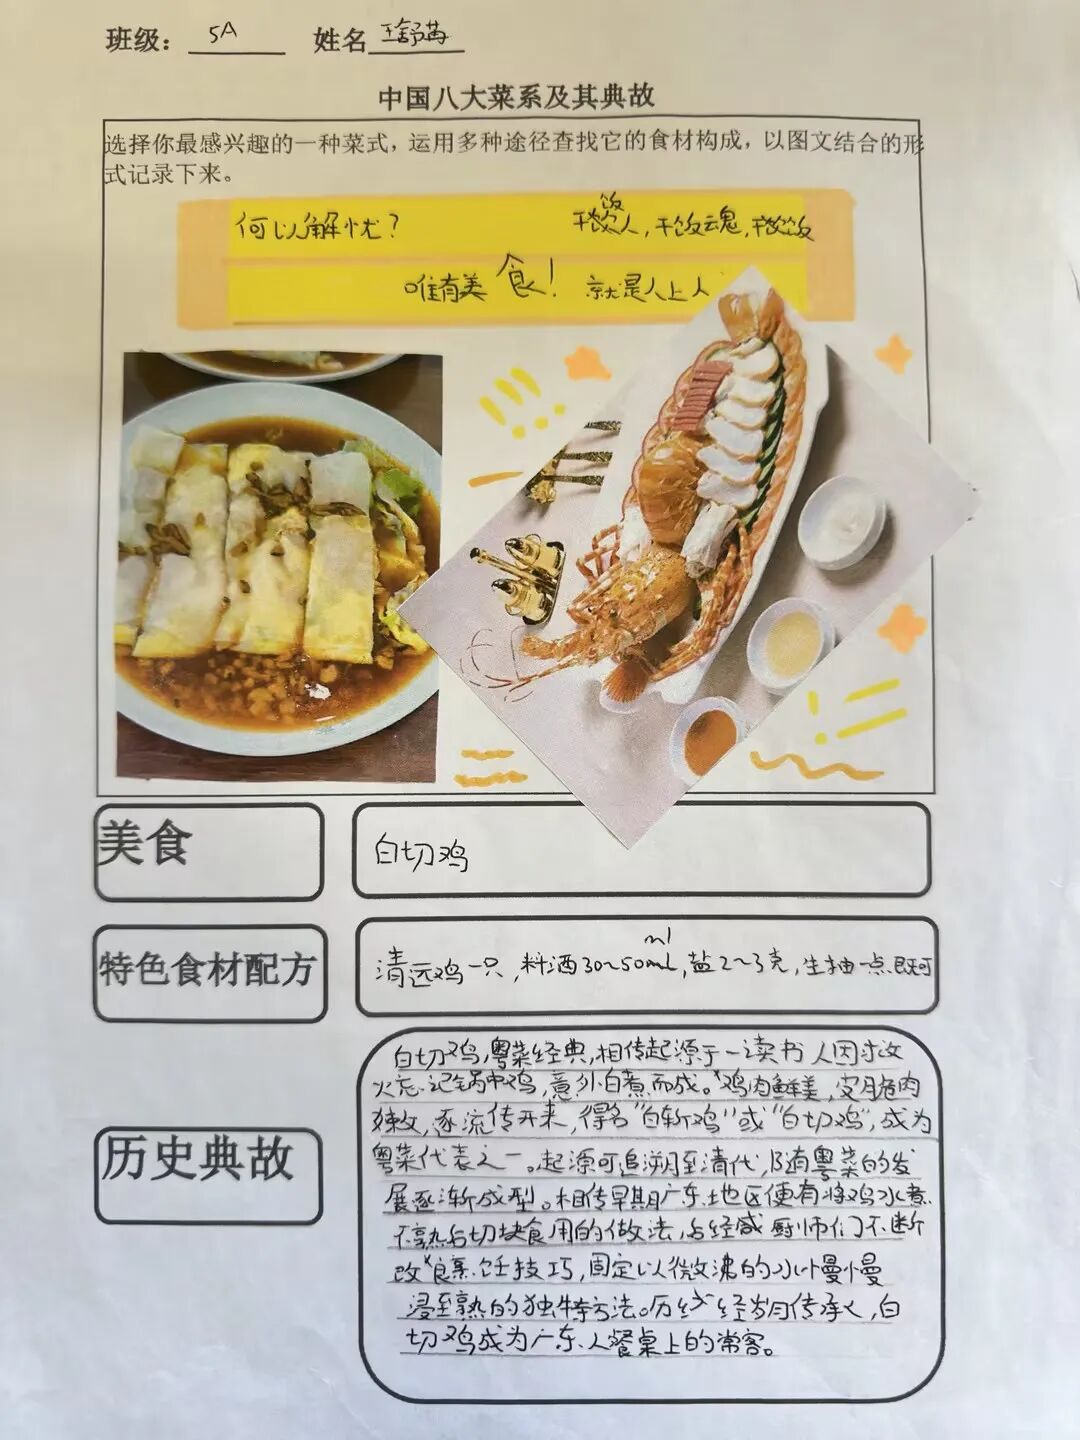 班级： 5A 姓名 王舒苒
中国八大菜系及其典故
选择你最感兴趣的一种菜式，运用多种途径查找它的食材构成，以图文结合的形
式记录下来。
何以解忧？
饭
干饭人，干饭魂，干饭饭
唯有美食！ 就是人上人
美食
白切鸡
特色食材配方
ml
清远鸡一只，料酒30～50ml，盐2～3克，生抽一点即可
历史典故
白切鸡，粤菜经典，相传起源于一读书人因求救
火忘记锅中鸡，意外白煮而成。鸡肉鲜美，皮脆肉
嫩，逐流传开来，得名“白斩鸡”或“白切鸡”，成为
粤菜代表之一。起源可追溯至清代，随有粤菜的发
展逐渐成型。相传早期广东地区便有将鸡水煮
不熟后切块食用的做法，后经 厨师们不断
改 烹饪技巧，固定以微沸的水慢慢
浸至熟的独特方法。历经 岁月传承，白
切鸡成为广东人餐桌上的常客。